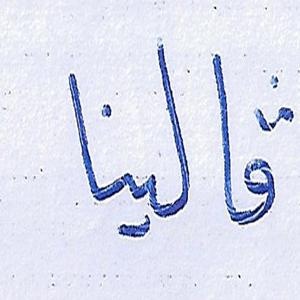 ڤالينا